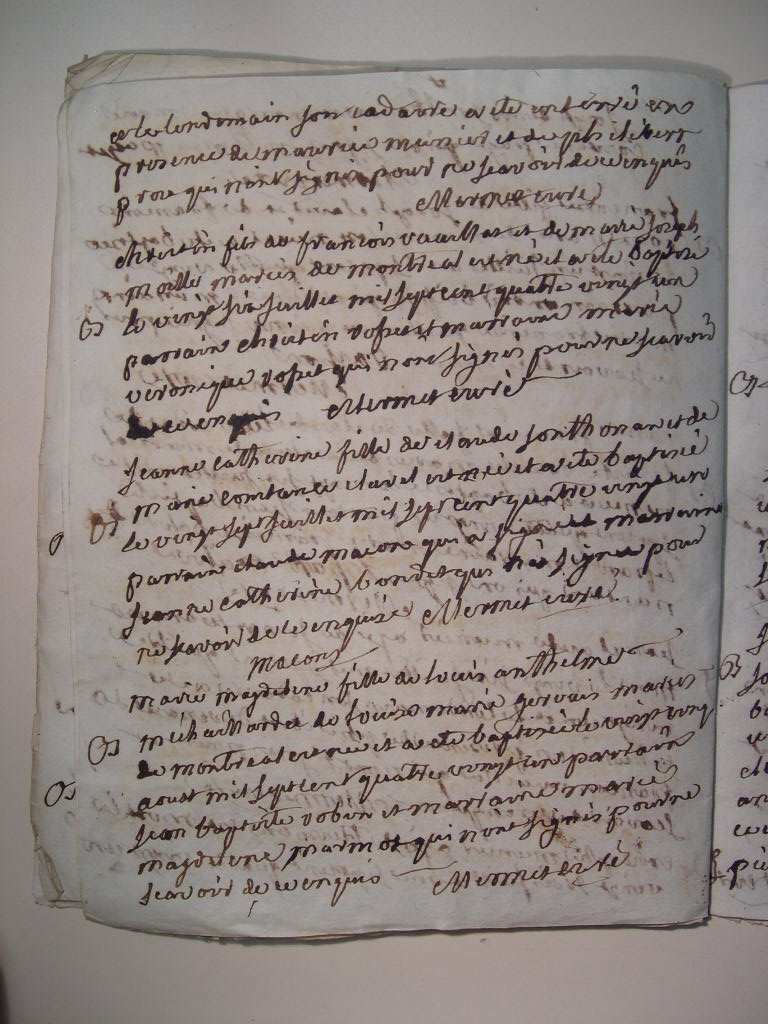 et le lendemain son cadavre a ete enterré en
presence de maurice munier et de philibert
proz qui n'ont signés pour ne sçavoir de ce enquis
Mermet curé
chretin fils de francois vuaillat et de marie joseph
moille mariés de montreal est né et a ete baptisé
B le vingt six juillet mil sept cent quatre vingt un
parrain chretin rosset marraine marie
veronique rosset qui n'ont signés pour ne scavoir
de ce enquis Mermet curé
jeanne catherine fille de claude jonthonan et de
marie constance clavel est né et a ete baptisée
B le vingt sept juillet mil sept cent quatre vingt un
parrain claude macon qui a signé et marraine
jeanne catherine bondet qui n'a signée pour
ne scavoir de ce enquise Mermet curé
macon
marie magdelene fille de louis anthelme
B michaillard et de louise marie gervais mariés
de montreal est née et a ete baptisée le
B aoust mil sept cent quatre vingt un parrain
jean baptiste robin et marraine marie
magdelene marmot qui n'ont signés pour ne
scavoir de ce enquis Mermet curé